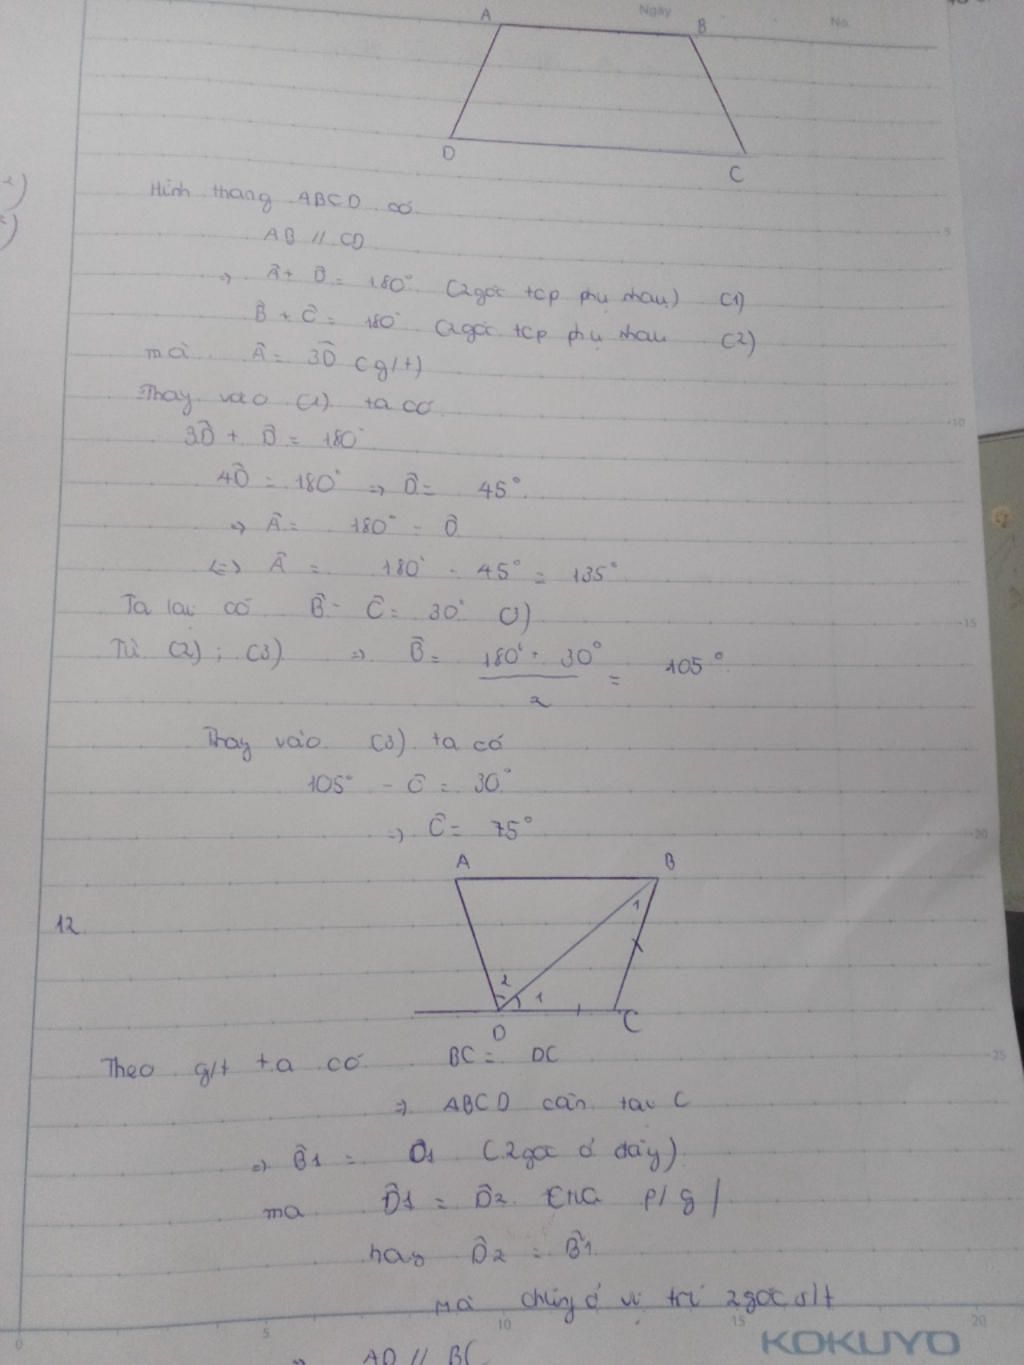 Ngày
No.
A
B
D
C
Hình thang ABCD có
AB // CD
=> Â + D̂ = 180° (2 góc tcp phụ nhau) (1)
B̂ + Ĉ = 180° (2 góc tcp phụ nhau (2)
mà Â = 3D̂ (g/t)
Thay vào (1) ta có
3D̂ + D̂ = 180°
4D̂ = 180° => D̂ = 45°
=> Â = 180° - D̂
<=> Â = 180° - 45° = 135°
Ta lại có B̂ - Ĉ = 30° (3)
Từ (2) ; (3) => B̂ = 180° + 30° = 105°
2
Thay vào (3) ta có
105° - Ĉ = 30°
=> Ĉ = 75°
A
B
12
1
2
1
D
C
Theo g/t ta có BC = DC
=> ABCD cân tại C
=> B̂1 = D̂1 (2 góc ở đáy)
mà D̂1 = D̂2 p/g
hay D̂2 = B̂1
Mà chúng ở vị trí 2 góc slt
=> AD // BC
5
10
15
20
25
0
5
10
15
20
KOKUYO